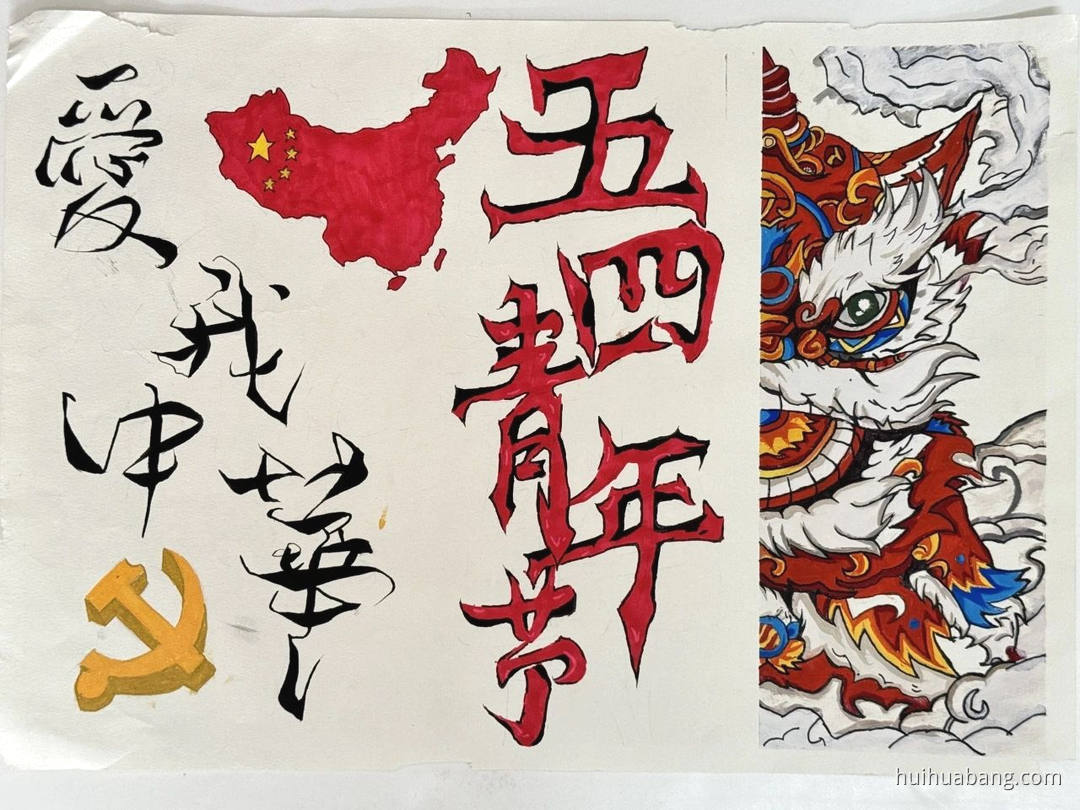 愛我中華
五四青年节
huihuabang.com